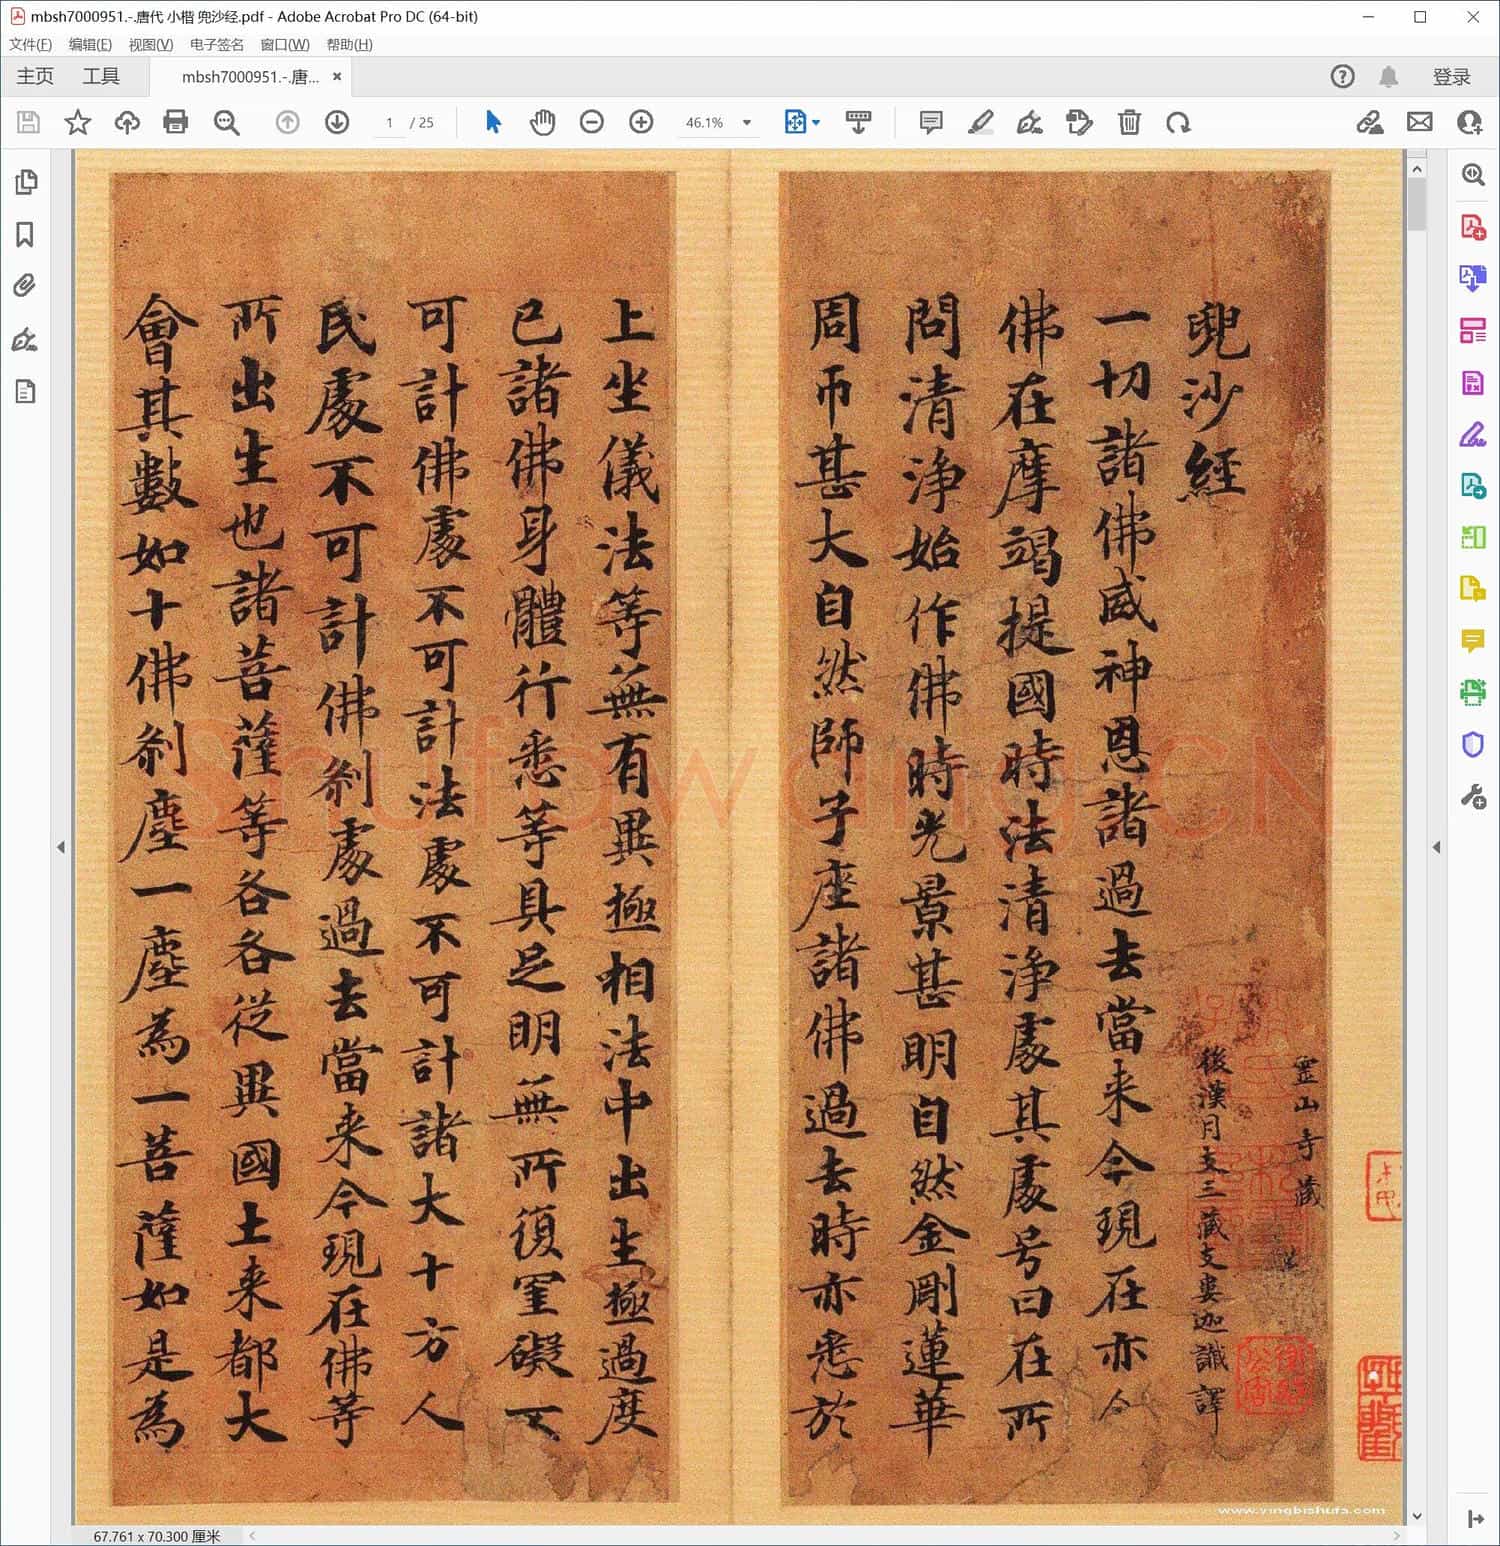 mbsh7000951.-.唐代 小楷 兜沙经.pdf - Adobe Acrobat Pro DC (64-bit)
文件(F) 编辑(E) 视图(V) 电子签名 窗口(W) 帮助(H)
主页 工具 mbsh7000951.-.唐... × 登录
1 / 25 46.1%
靈山寺藏
兜沙經
後漢月支三藏支婁迦讖譯
一切諸佛威神恩諸過去當来今現在亦今
佛在摩竭提國時法清淨處其處号曰在所
問清淨始作佛時光景甚明自然金剛蓮華
周帀甚大自然師子座諸佛過去時亦悉於
上坐儀法等無有異極相法中出生極過度
已諸佛身體行悉等具足明無所復罣礙不
可計佛處不可計法處不可計諸大十方人
民處不可計佛剎處過去當来今現在佛等
所出生也諸菩薩等各各從異國土来都大
會其數如十佛剎塵一塵為一菩薩如是為
Shufawang.CN
www.yingbishufa.com
67.761 x 70.300 厘米